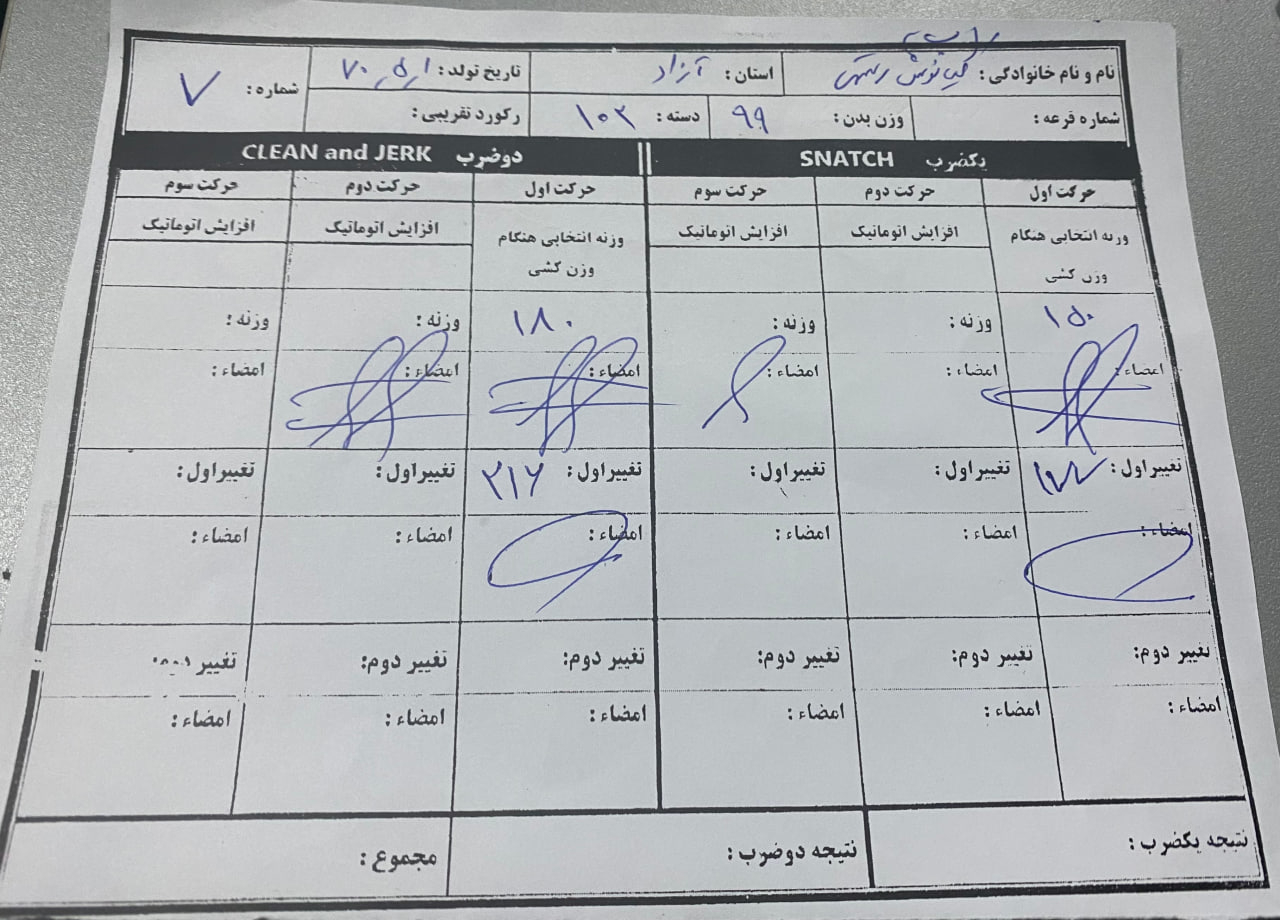 نام و نام خانوادگی : کیانوش رستمی استان : آزاد تاریخ تولد : ۷۰،۵،۱ شماره : ۷
شماره قرعه : وزن بدن : ۹۹ دسته : ۱۰۲ رکورد تقریبی :
یکضرب SNATCH دوضرب CLEAN and JERK
حرکت اول حرکت دوم حرکت سوم حرکت اول حرکت دوم حرکت سوم
وزنه انتخابی هنگام افزایش اتوماتیک افزایش اتوماتیک وزنه انتخابی هنگام افزایش اتوماتیک افزایش اتوماتیک
وزن کشی وزن کشی
۱۵۰ وزنه : وزنه : ۱۸۰ وزنه : وزنه :
امضاء : امضاء : امضاء : امضاء : امضاء : امضاء :
تغییر اول : تغییر اول : تغییر اول : تغییر اول : ۲۱۶ تغییر اول : تغییر اول :
امضاء : امضاء : امضاء : امضاء : امضاء : امضاء :
تغییر دوم: تغییر دوم: تغییر دوم: تغییر دوم: تغییر دوم: تغییر دوم:
امضاء : امضاء : امضاء : امضاء : امضاء : امضاء :
نتیجه یکضرب : نتیجه دوضرب : مجموع :